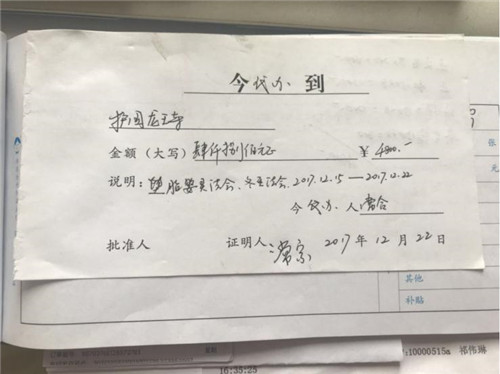 今代办到
护国龙王寺
金额（大写）肆仟捌佰元正 ¥ 4800.-
说明：堕胎婴灵法会、冬至法会、2017.12.15—2017.12.22
今代办人 常合
批准人 证明人 常宗 2017年12月22日
张
元
其他
补贴
:10000515a 祁伟琳
16:35:25